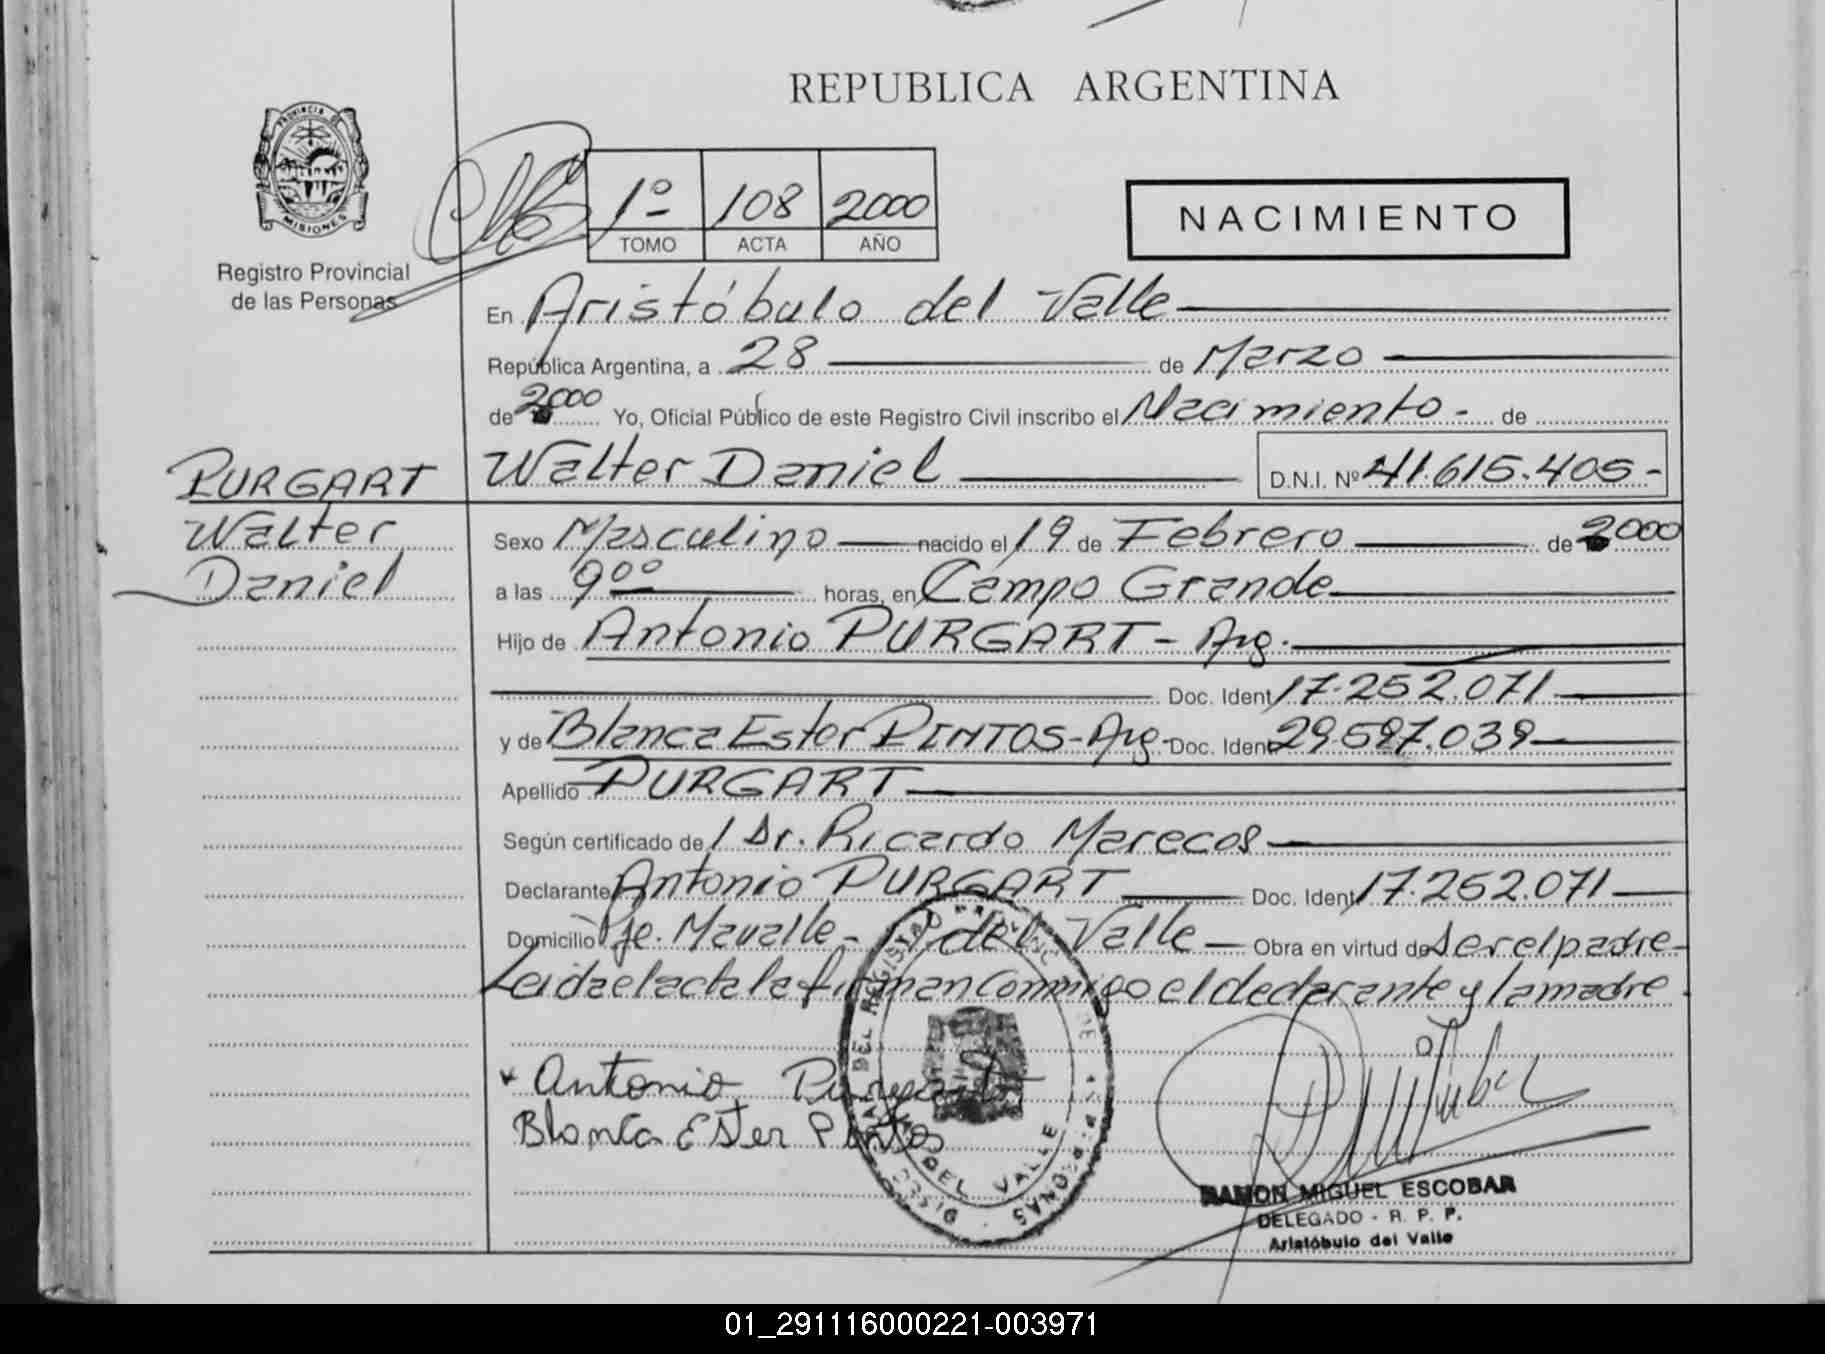 REPUBLICA ARGENTINA
PROVINCIA DE
MISIONES
Registro Provincial
de las Personas
1º 108 2000
TOMO ACTA AÑO
NACIMIENTO
En Aristóbulo del Valle
República Argentina, a 28 de Marzo
de 2000 Yo, Oficial Público de este Registro Civil inscribo el Nacimiento - de
PURGART Walter Daniel D.N.I. Nº 41.615.405-
Walter Sexo Masculino nacido el 19 de Febrero de 2000
Daniel a las 9º º horas, en Campo Grande
Hijo de Antonio PURGART - Arg.
Doc. Ident 17.252.071
y de Blanca Ester PINTOS - Arg - Doc. Ident 29.597.039
Apellido PURGART
Según certificado de / Dr. Ricardo Marecos
Declarante Antonio PURGART Doc. Ident 17.252.071
Domicilio Pje. Mavalle - del Valle Obra en virtud de ser el padre -
Leida el acta la firman conmigo el declarante y la madre.
Antonio Purgart
Blanca Ester Pintos
DEL VALLE
RAMON MIGUEL ESCOBAR
DELEGADO - R. P. P.
Aristóbulo del Valle
01_291116000221-003971